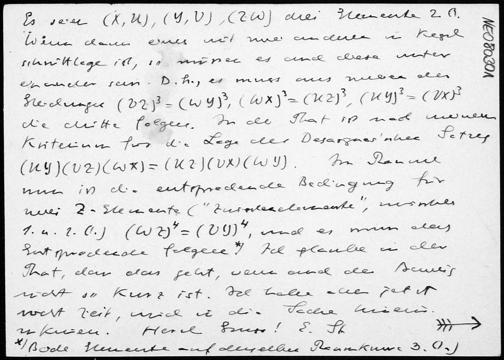 Es seien (X,U), (Y,V), (Z,W) drei Elemente 2. O.
Wenn dann eines mit zwei anderen in Kegel
schnittlage ist, so müssen es auch diese unter
einander sein. D.h., es muss aus zweien der
Gleichungen (VZ)³=(WY)³, (WX)³=(UZ)³, (UY)³=(VX)³
die dritte folgen. In der That ist nach meinem
Kriterium für die Lage des Desargues'schen Satzes
(UY)(VZ)(WX)=(UZ)(VX)(WY). Im Raume
nun ist die entsprechende Bedingung für
zwei 2-Elemente ("Zwischenelemente", zwischen
1. u. 2. O.) (WZ)⁴=(VY)⁴, und es muss das
Entsprechende folgen.*) Ich glaube in der
That, dass das geht, wenn auch der Beweis
nicht so kurz ist. Ich habe aber jetzt
nicht Zeit, mich in die Sache hinein
zuknien. Herzl. Gruss! E. St
*) Beide Elemente auf derselben Raumkurve 3. O.)
NEO8030A